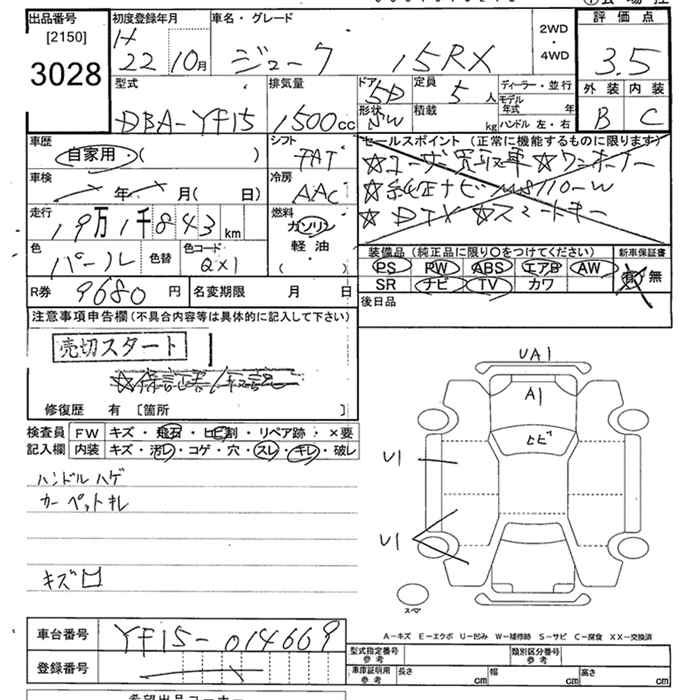 出品番号
[2150]
3028
初度登録年月
H
22 10月
車名・グレード
ジューク 15RX
2WD
・
4WD
評価点
3.5
外装 内装
B C
型式
DBA-YF15
排気量
1500cc
ドア
5D
形状
SW
定員
5人
積載
kg
ディーラー・並行
モデル
年式 年
ハンドル 左・右
車歴
自家用・( )
シフト
FAT
車検
年 月( 日)
冷房
AAC
走行
19万1千843km
燃料
ガソリン
軽油・
( )
色
パール
色替
色コード
QX1
R券 9680円
名変期限 月 日
セールスポイント(正常に機能するものに限ります)
☆ユーザ買取車☆ワンオーナー
☆純正ナビ
☆DTV ☆スマートキー
装備品(純正品に限り〇をつけてください)
PS PW ABS エアB AW
SR ナビ TV カワ
新車保証書
有・無
後日品
注意事項申告欄(不具合内容等は具体的に記入して下さい)
売切スタート
修復歴 有 [箇所 ]
検査員
記入欄
FW キズ・飛石・ヒビ割・リペア跡・×要
内装 キズ・汚レ・コゲ・穴・スレ・キレ・破レ
ハンドルハゲ
カーペットキレ
キズ凹
UA1
A1
ヒビ
U1
U1
スペア
A-キズ E-エクボ U-凹み W-補修跡 S-サビ C-腐食 XX-交換済
車台番号 YF15-014669
登録番号
型式指定番号
参考
類別区分番号
参考
車庫証明用
参考
長さ cm 幅 cm 高さ cm
希望出品コーナー